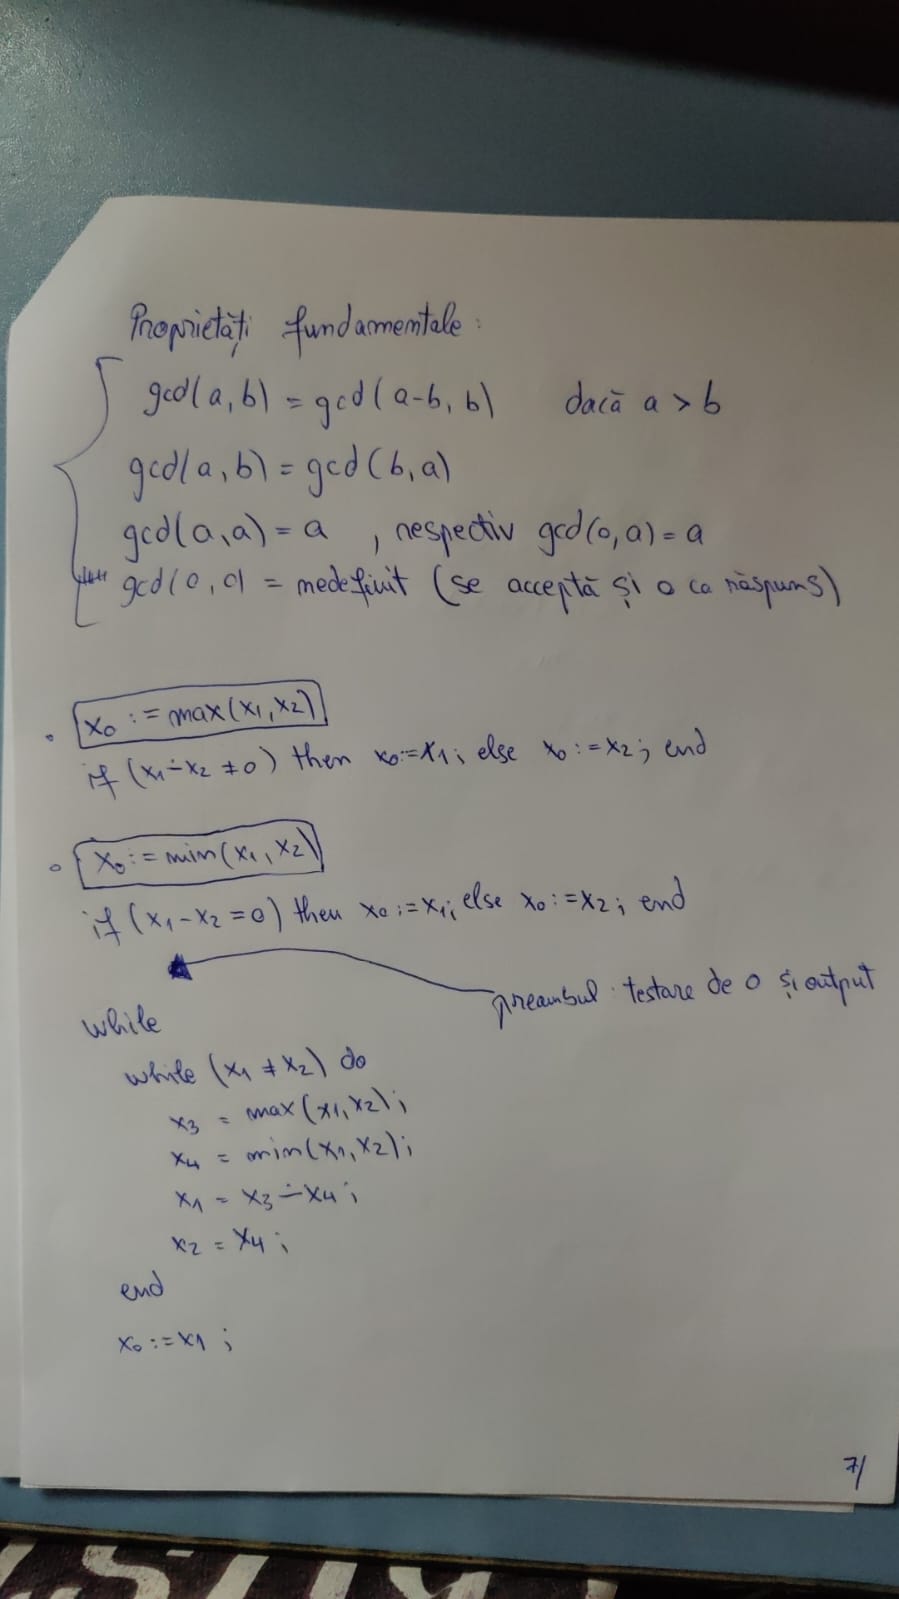 Proprietăți fundamentale:
gcd(a,b) = gcd(a-b, b) dacă a > b
gcd(a,b) = gcd(b,a)
gcd(a,a) = a , respectiv gcd(0,a) = a
gcd(0,0) = nedefinit (se acceptă și 0 ca răspuns)
x0 := max(x1,x2)
if (x1 ∸ x2 ≠ 0) then x0:=x1; else x0:=x2; end
x0 := min(x1,x2)
if (x1 - x2 = 0) then x0:=x1; else x0:=x2; end
preambul: testare de 0 și output
while
while (x1 ≠ x2) do
x3 = max(x1,x2);
x4 = min(x1,x2);
x1 = x3 ∸ x4;
x2 = x4;
end
x0 := x1;
7/